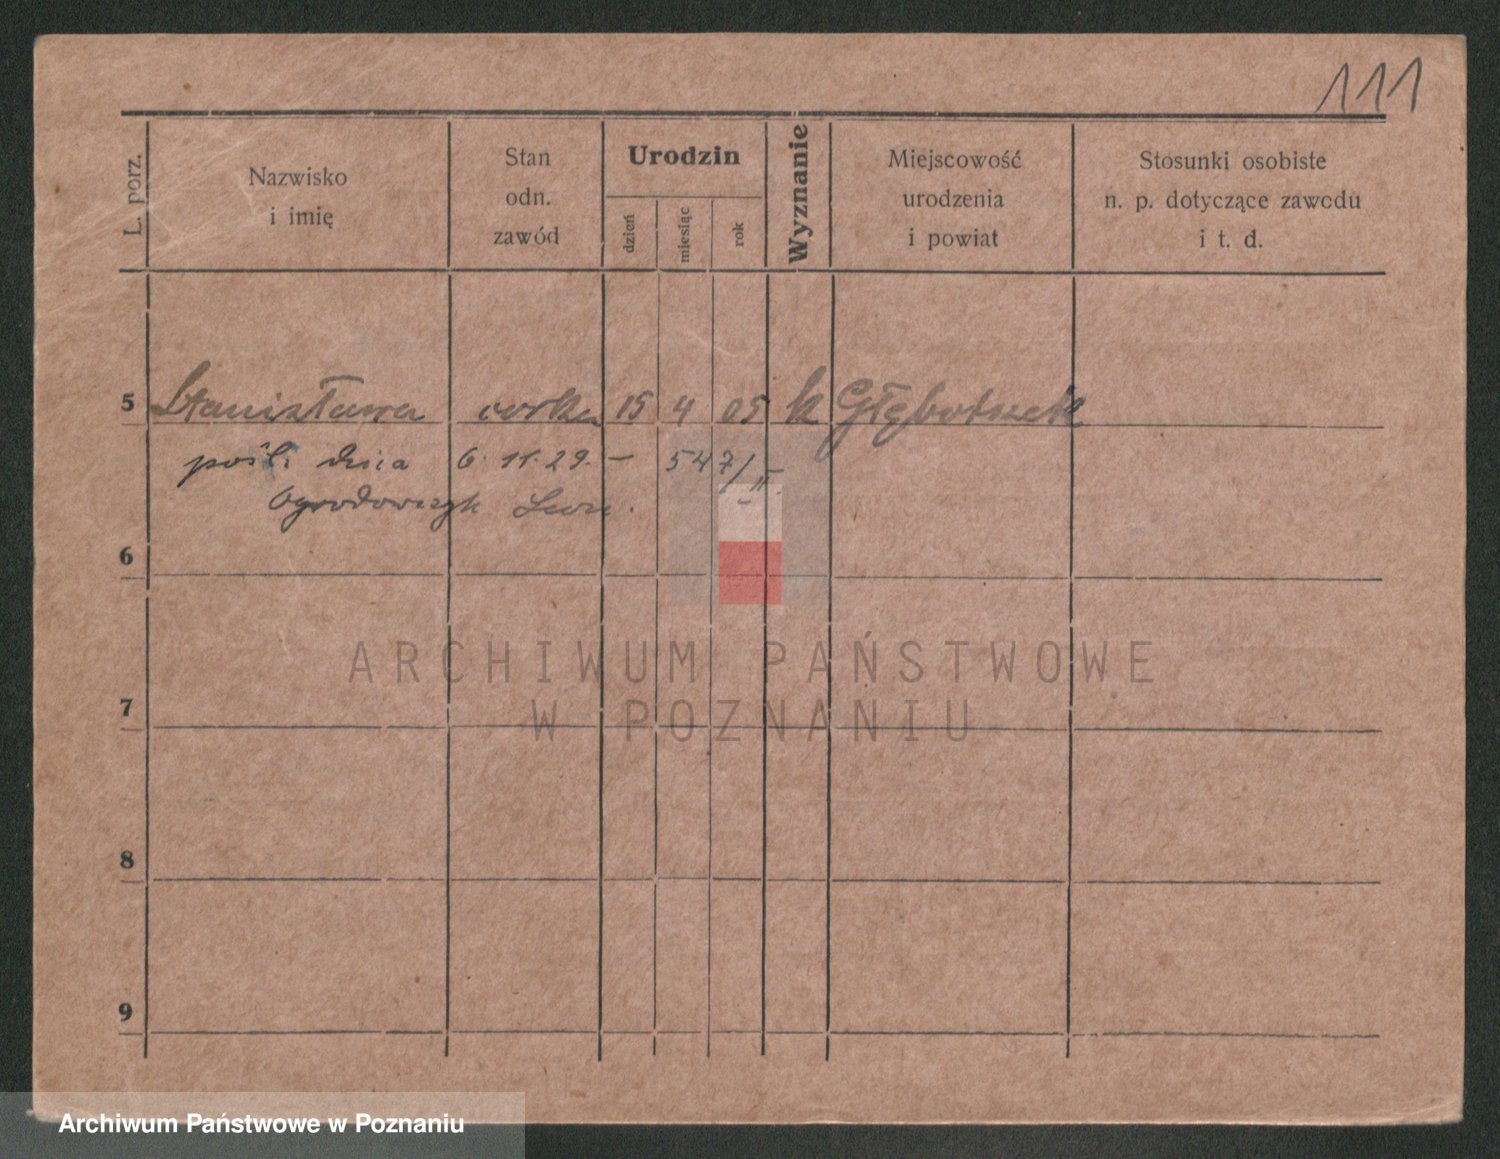 111
L. porz.
Nazwisko
i imię
Stan
odn.
zawód
Urodzin
dzień
miesiąc
rok
Wyznanie
Miejscowość
urodzenia
i powiat
Stosunki osobiste
n. p. dotyczące zawodu
i t. d.
5 Stanisława córka 15 4 05 k Głęboczek
pośl. dnia 6. 11. 29. – 547/II.
Ogrodowczyk
6
7
8
9
ARCHIWUM PAŃSTWOWE
W POZNANIU
Archiwum Państwowe w Poznaniu